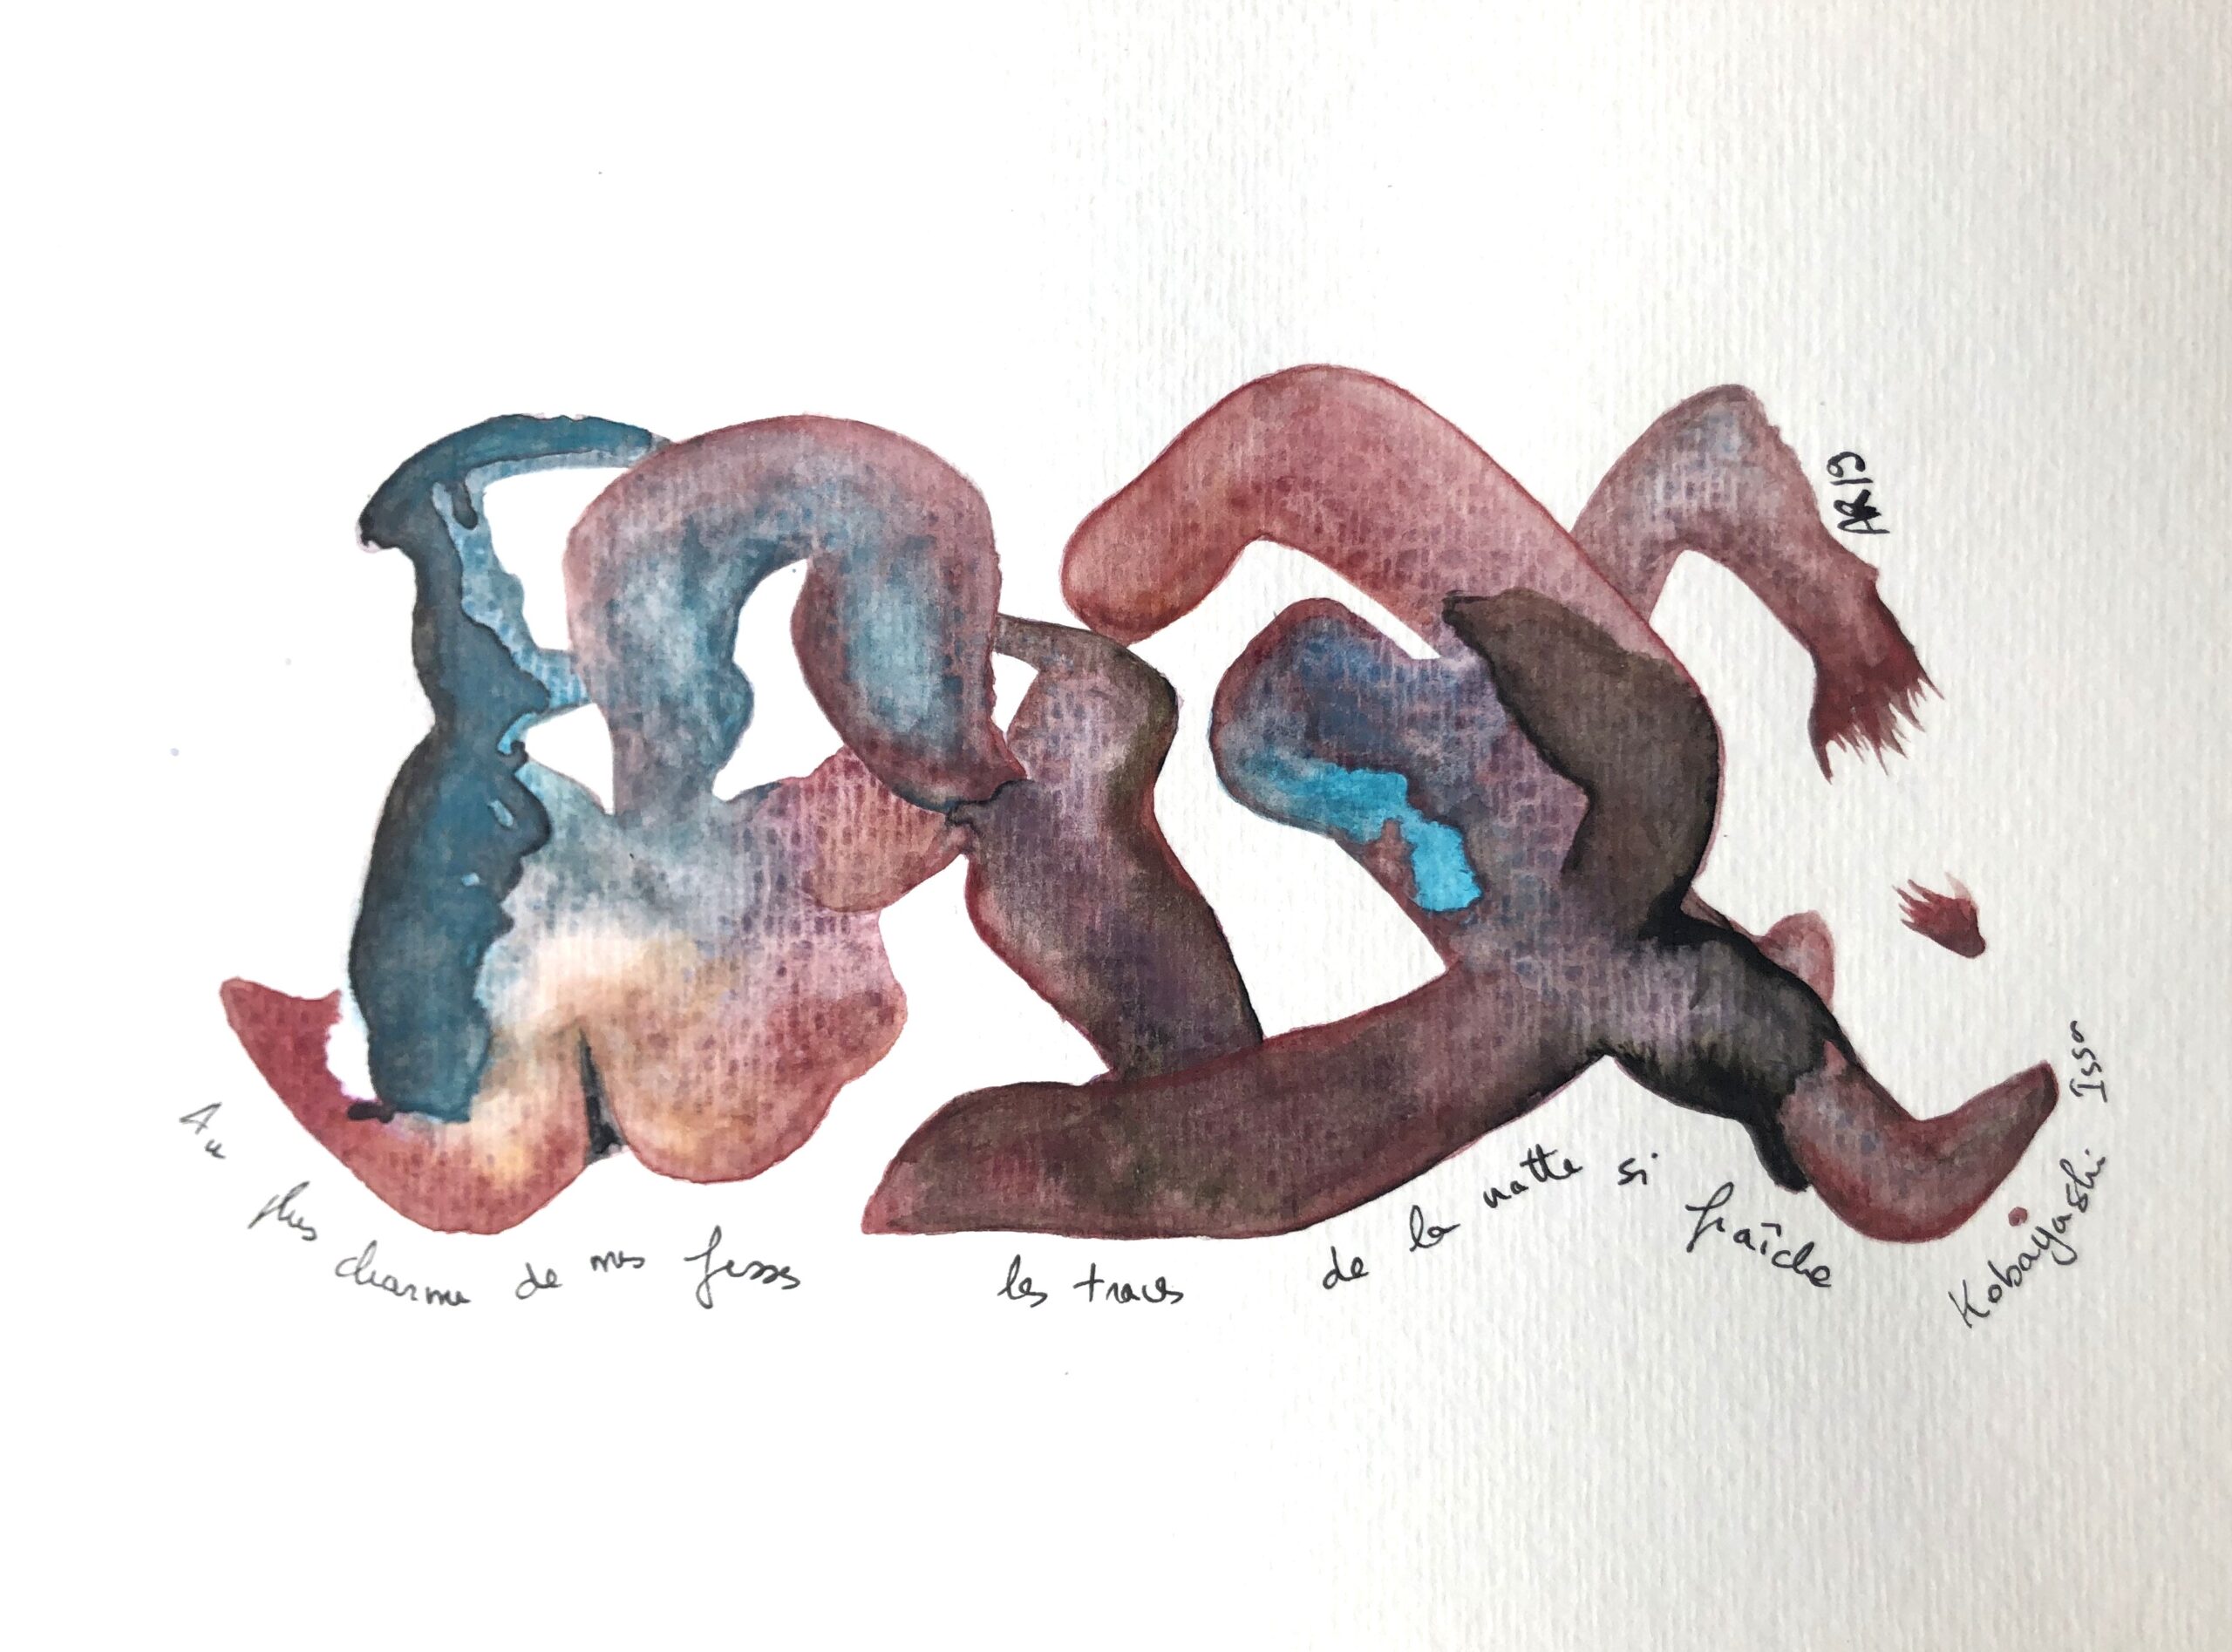 Au plus charme de mes fesses les traces de la natte si fraîche
Kobayashi Isso
AR19